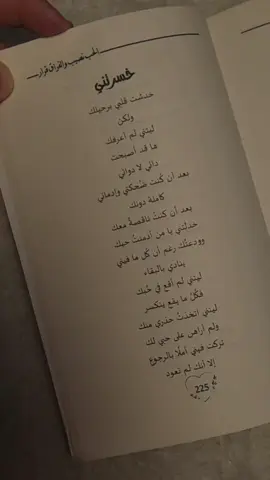 الحب نصيب والفراق قرار
خسرتني
خذلت قلبي برحيلك
ولكن
ليتني لم أعرفك
ها قد أصبحت
دائي لا دوائي
بعد ان كنت ضحكتي وإدماني
كاملة دونك
بعد أن كنت ناقصة معك
خذلتني يا من أدمنت حبك
وودعتك رغم أن كل ما فيني
ينادي بالبقاء
ليتني لم أقع في حبك
فكل ما يقع ينكسر
ليتني اتخذت حذري منك
ولم أراهن على حبي لك
تركت فيني أملا بالرجوع
إلا أنك لم تعود
225